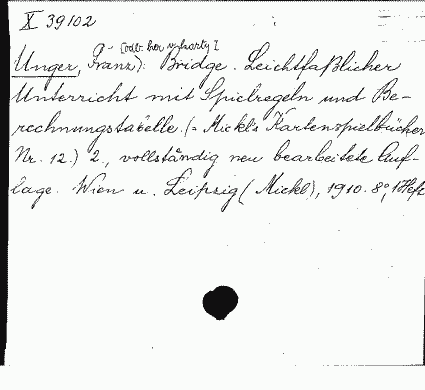 X 39102
Unger, Franz): Bridge. Leichtfaßlicher
Unterricht mit Spielregeln und Be-
rechnungstabelle. (= Mickl's Kartenspielbücher
Nr. 12.) 2., vollständig neu bearbeitete Auf-
lage. Wien u. Leipzig (Mickl), 1910. 8°, 1 Heft